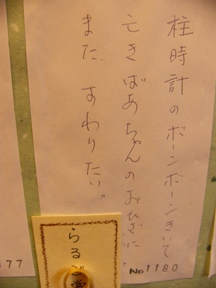 柱時計のボーンボーンきいて
亡きばあちゃんのおひざに
また すわりたい。
No 1180
77
らるご